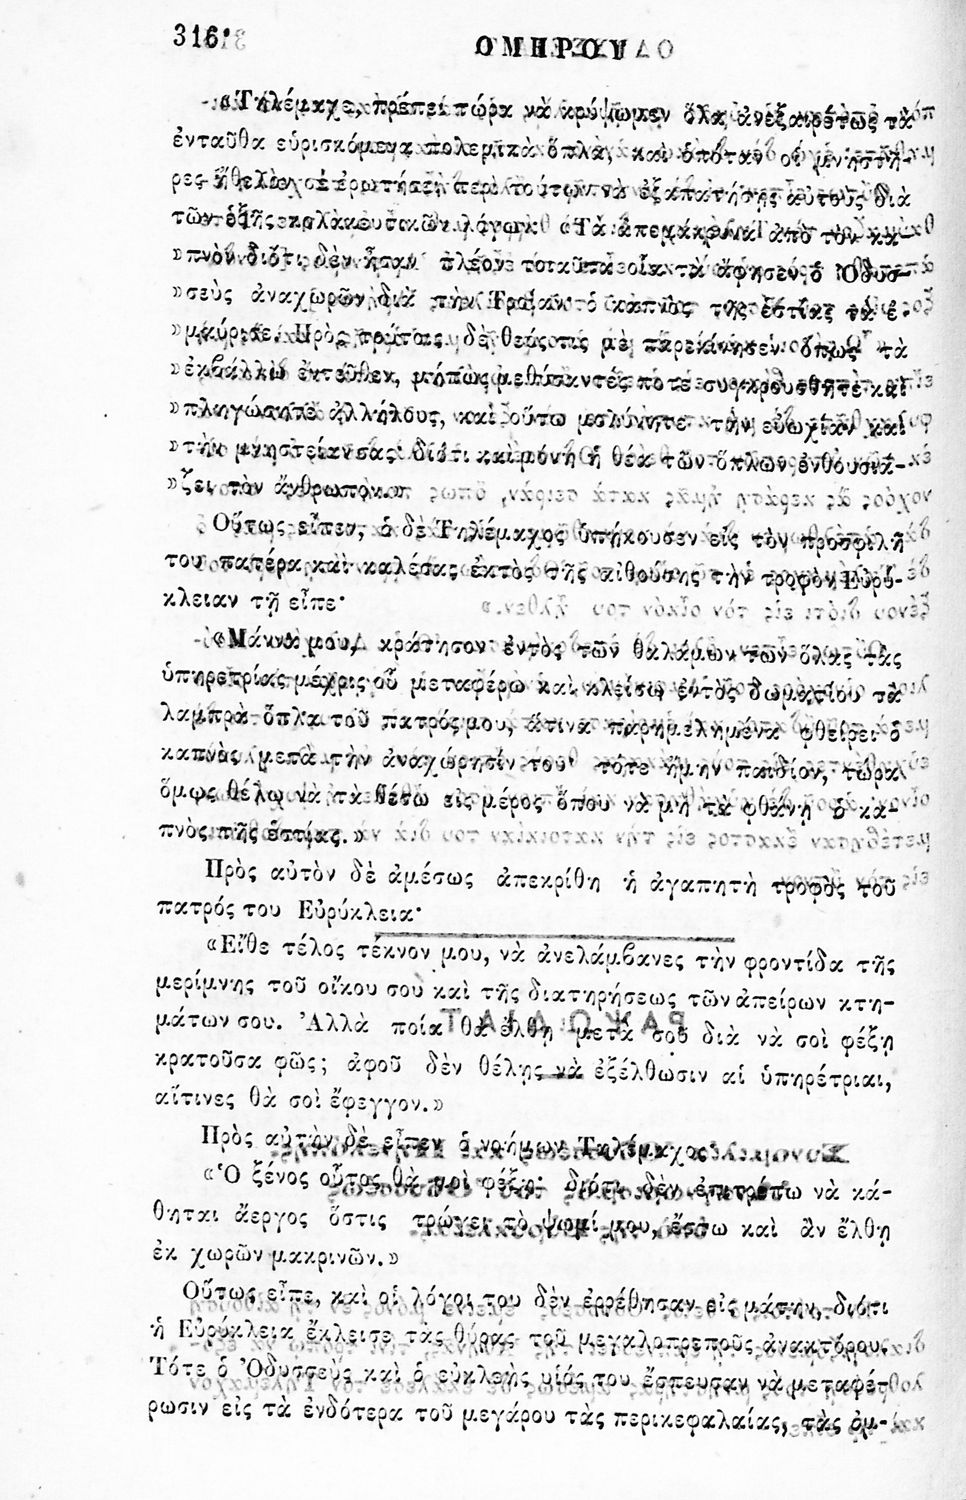 316
ΟΜΗΡΟΥ
«Τηλέμαχε, πρέπει τώρα νὰ κρύψωμεν ὅλα ἀνεξαιρέτως τὰ
ἐνταῦθα εὑρισκόμενα πολεμικὰ ὅπλα, καὶ ὁπόταν οἱ μνηστῆ-
ρες ἤθελόν σε ἐρωτήσει περὶ τούτων νὰ ἐξαπατήσῃς αὐτοὺς διὰ
τῶν ἑξῆς κολακευτικῶν λόγων· «Τὰ ἀπεμάκρυνα ἀπὸ τὸν κα-
»πνὸν διότι δὲν ἦσαν πλέον τοιαῦτα οἷα τὰ ἄφησεν ὁ Ὀδυσ-
»σεὺς ἀναχωρῶν διὰ τὴν Τροίαν· ὁ καπνὸς τῆς ἑστίας τὰ ἐ-
»μαύρισε. Πρὸς τούτοις δὲ θεός τις μὲ παρεκίνησεν ὅπως τὰ
»ἐκβάλλω ἐντεῦθεν, μήπως μεθύσαντές ποτε συγκρουσθῆτε καὶ
»πληγώσητε ἀλλήλους, καὶ οὕτω μολύνητε τὴν εὐωχίαν καὶ
»τὴν μνηστείαν σας· διότι καὶ μόνη ἡ θέα τῶν ὅπλων ἐνθουσιά-
»ζει τὸν ἄνθρωπον.»
Οὕτως εἶπεν, ὁ δὲ Τηλέμαχος ὑπήκουσεν εἰς τὸν προσφιλῆ
του πατέρα καὶ καλέσας ἐκτὸς τῆς αἰθούσης τὴν τροφὸν Εὐρύ-
κλειαν τῇ εἶπε·
«Μάννα μου, κράτησον ἐντὸς τῶν θαλάμων των ὅλας τὰς
ὑπηρετρίας μέχρις οὗ μεταφέρω καὶ κλείσω ἐντὸς δωματίου τὰ
λαμπρὰ ὅπλα τοῦ πατρός μου, ἅτινα παρημελημένα φθείρει ὁ
καπνὸς μετὰ τὴν ἀναχώρησίν του· τότε ἤμην παιδίον, τώρα
ὅμως θέλω νὰ τὰ θέσω εἰς μέρος ὅπου νὰ μὴ τὰ φθάνῃ ὁ κα-
πνὸς τῆς ἑστίας.»
Πρὸς αὐτὸν δὲ ἀμέσως ἀπεκρίθη ἡ ἀγαπητὴ τροφὸς τοῦ
πατρός του Εὐρύκλεια·
«Εἴθε τέλος τέκνον μου, νὰ ἀνελάμβανες τὴν φροντίδα τῆς
μερίμνης τοῦ οἴκου σου καὶ τῆς διατηρήσεως τῶν ἀπείρων κτη-
μάτων σου. Ἀλλὰ ποία θὰ ἔλθῃ μετὰ σοῦ διὰ νὰ σοὶ φέξῃ
κρατοῦσα φῶς; ἀφοῦ δὲν θέλῃς νὰ ἐξέλθωσιν αἱ ὑπηρέτριαι,
αἵτινες θὰ σοὶ ἔφεγγον.»
Πρὸς αὐτὴν δὲ εἶπεν ὁ νοήμων Τηλέμαχος·
«Ὁ ξένος οὗτος θὰ μοὶ φέξῃ· διότι δὲν ἐπιτρέπω νὰ κά-
θηται ἄεργος ὅστις τρώγει τὸ ψωμί μου, ἔστω καὶ ἂν ἔλθῃ
ἐκ χωρῶν μακρινῶν.»
Οὕτως εἶπε, καὶ οἱ λόγοι του δὲν ἐρρέθησαν εἰς μάτην, διότι
ἡ Εὐρύκλεια ἔκλεισε τὰς θύρας τοῦ μεγαλοπρεποῦς ἀνακτόρου.
Τότε ὁ Ὀδυσσεὺς καὶ ὁ εὐκλεὴς υἱός του ἔσπευσαν νὰ μεταφέ-
ρωσιν εἰς τὰ ἐνδότερα τοῦ μεγάρου τὰς περικεφαλαίας, τὰς ὀμ-